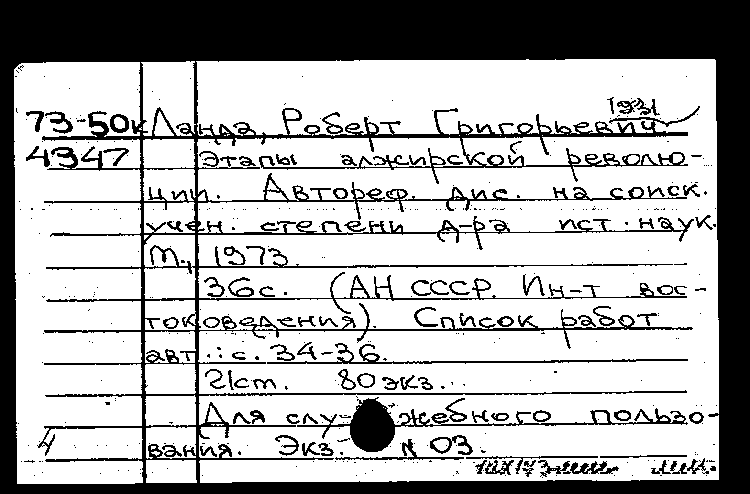 1931
73-50к Ланда, Роберт Григорьевич.
4347 Этапы алжирской револю-
ции. Автореф. дис. на соиск.
учен. степени д-ра ист. наук.
М., 1973.
36с. (АН СССР. Ин-т вос-
токоведения). Список работ
авт.: с. 34-36.
80экз..
Для слу- жебного пользо-
4 вания. Экз. N 03.